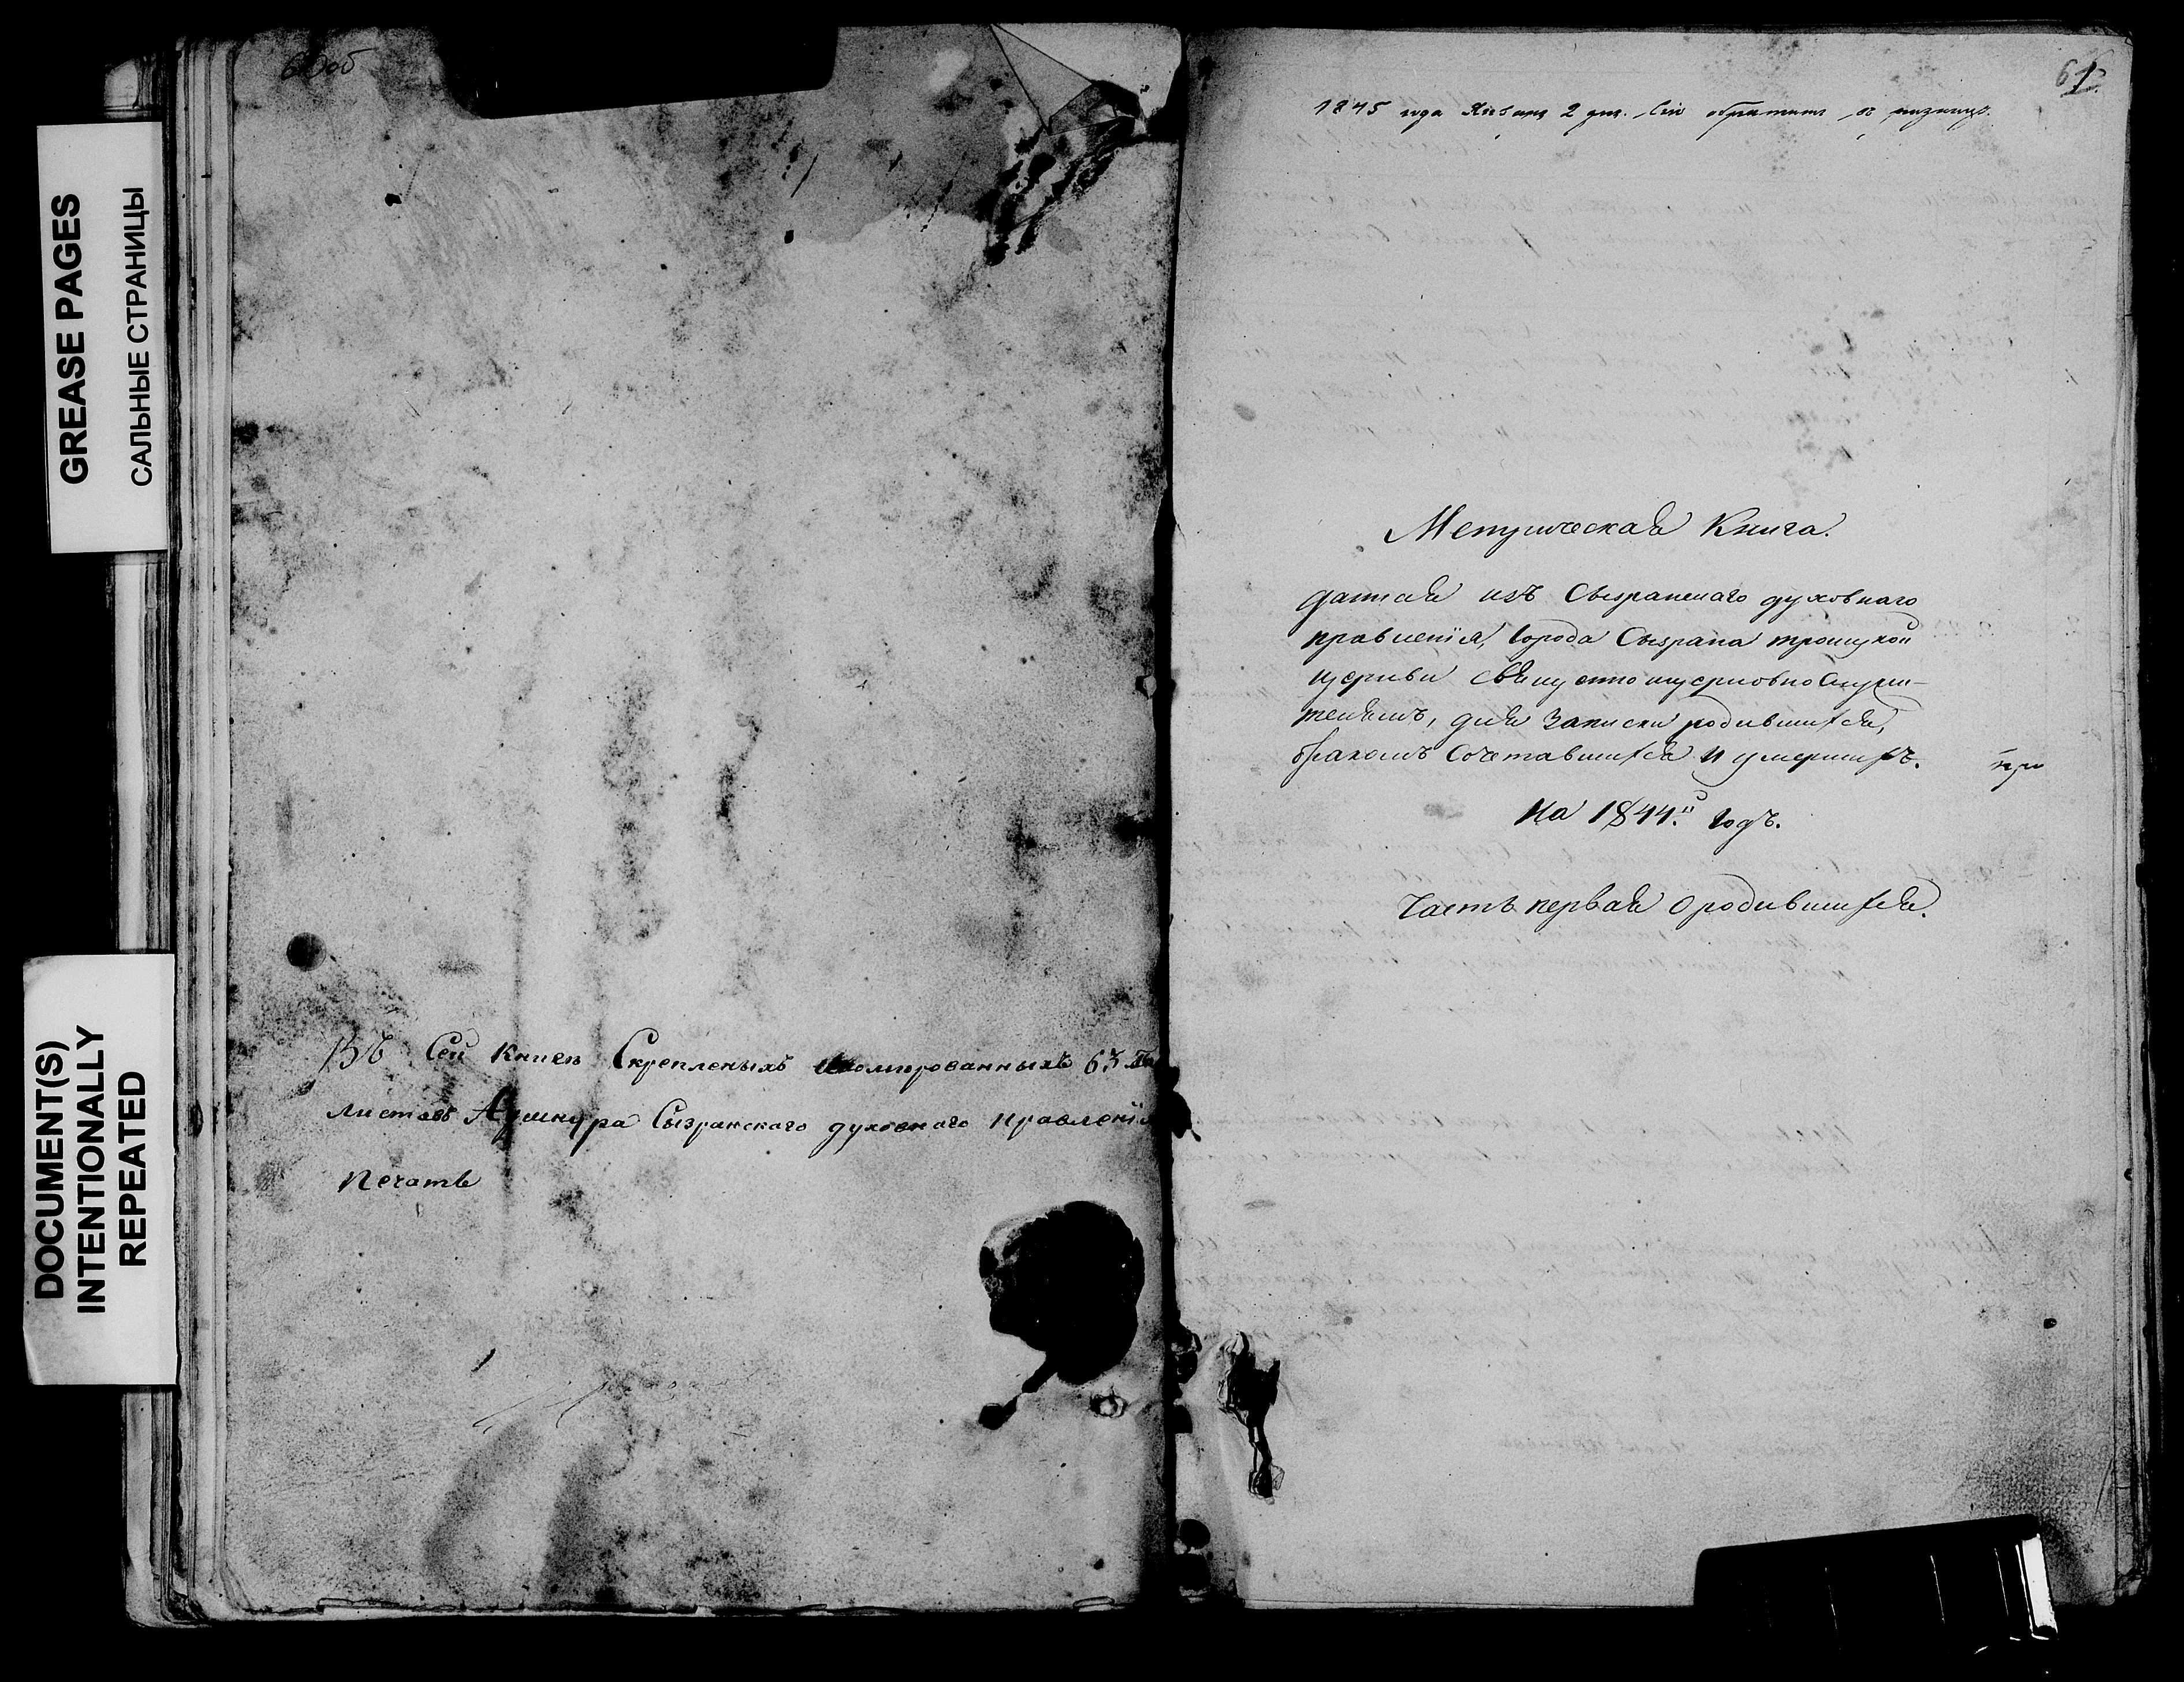 GREASE PAGES
САЛЬНЫЕ СТРАНИЦЫ
DOCUMENT(S)
INTENTIONALLY
REPEATED
60об
Въ сей книге скрепленыхъ 63
листовъ Сызранскаго духовнаго правленія
печать
61
1845 года Января 2 дня.
Метрическая Книга.
данная изъ Сызранскаго духовнаго
правленія, города Сызрана троицкой
церкви священноцерковнослужи-
телямъ, для записки родившихся,
бракомъ сочетавшихся и умершихъ.
на 1844.й годъ.
Часть первая о родившихся.